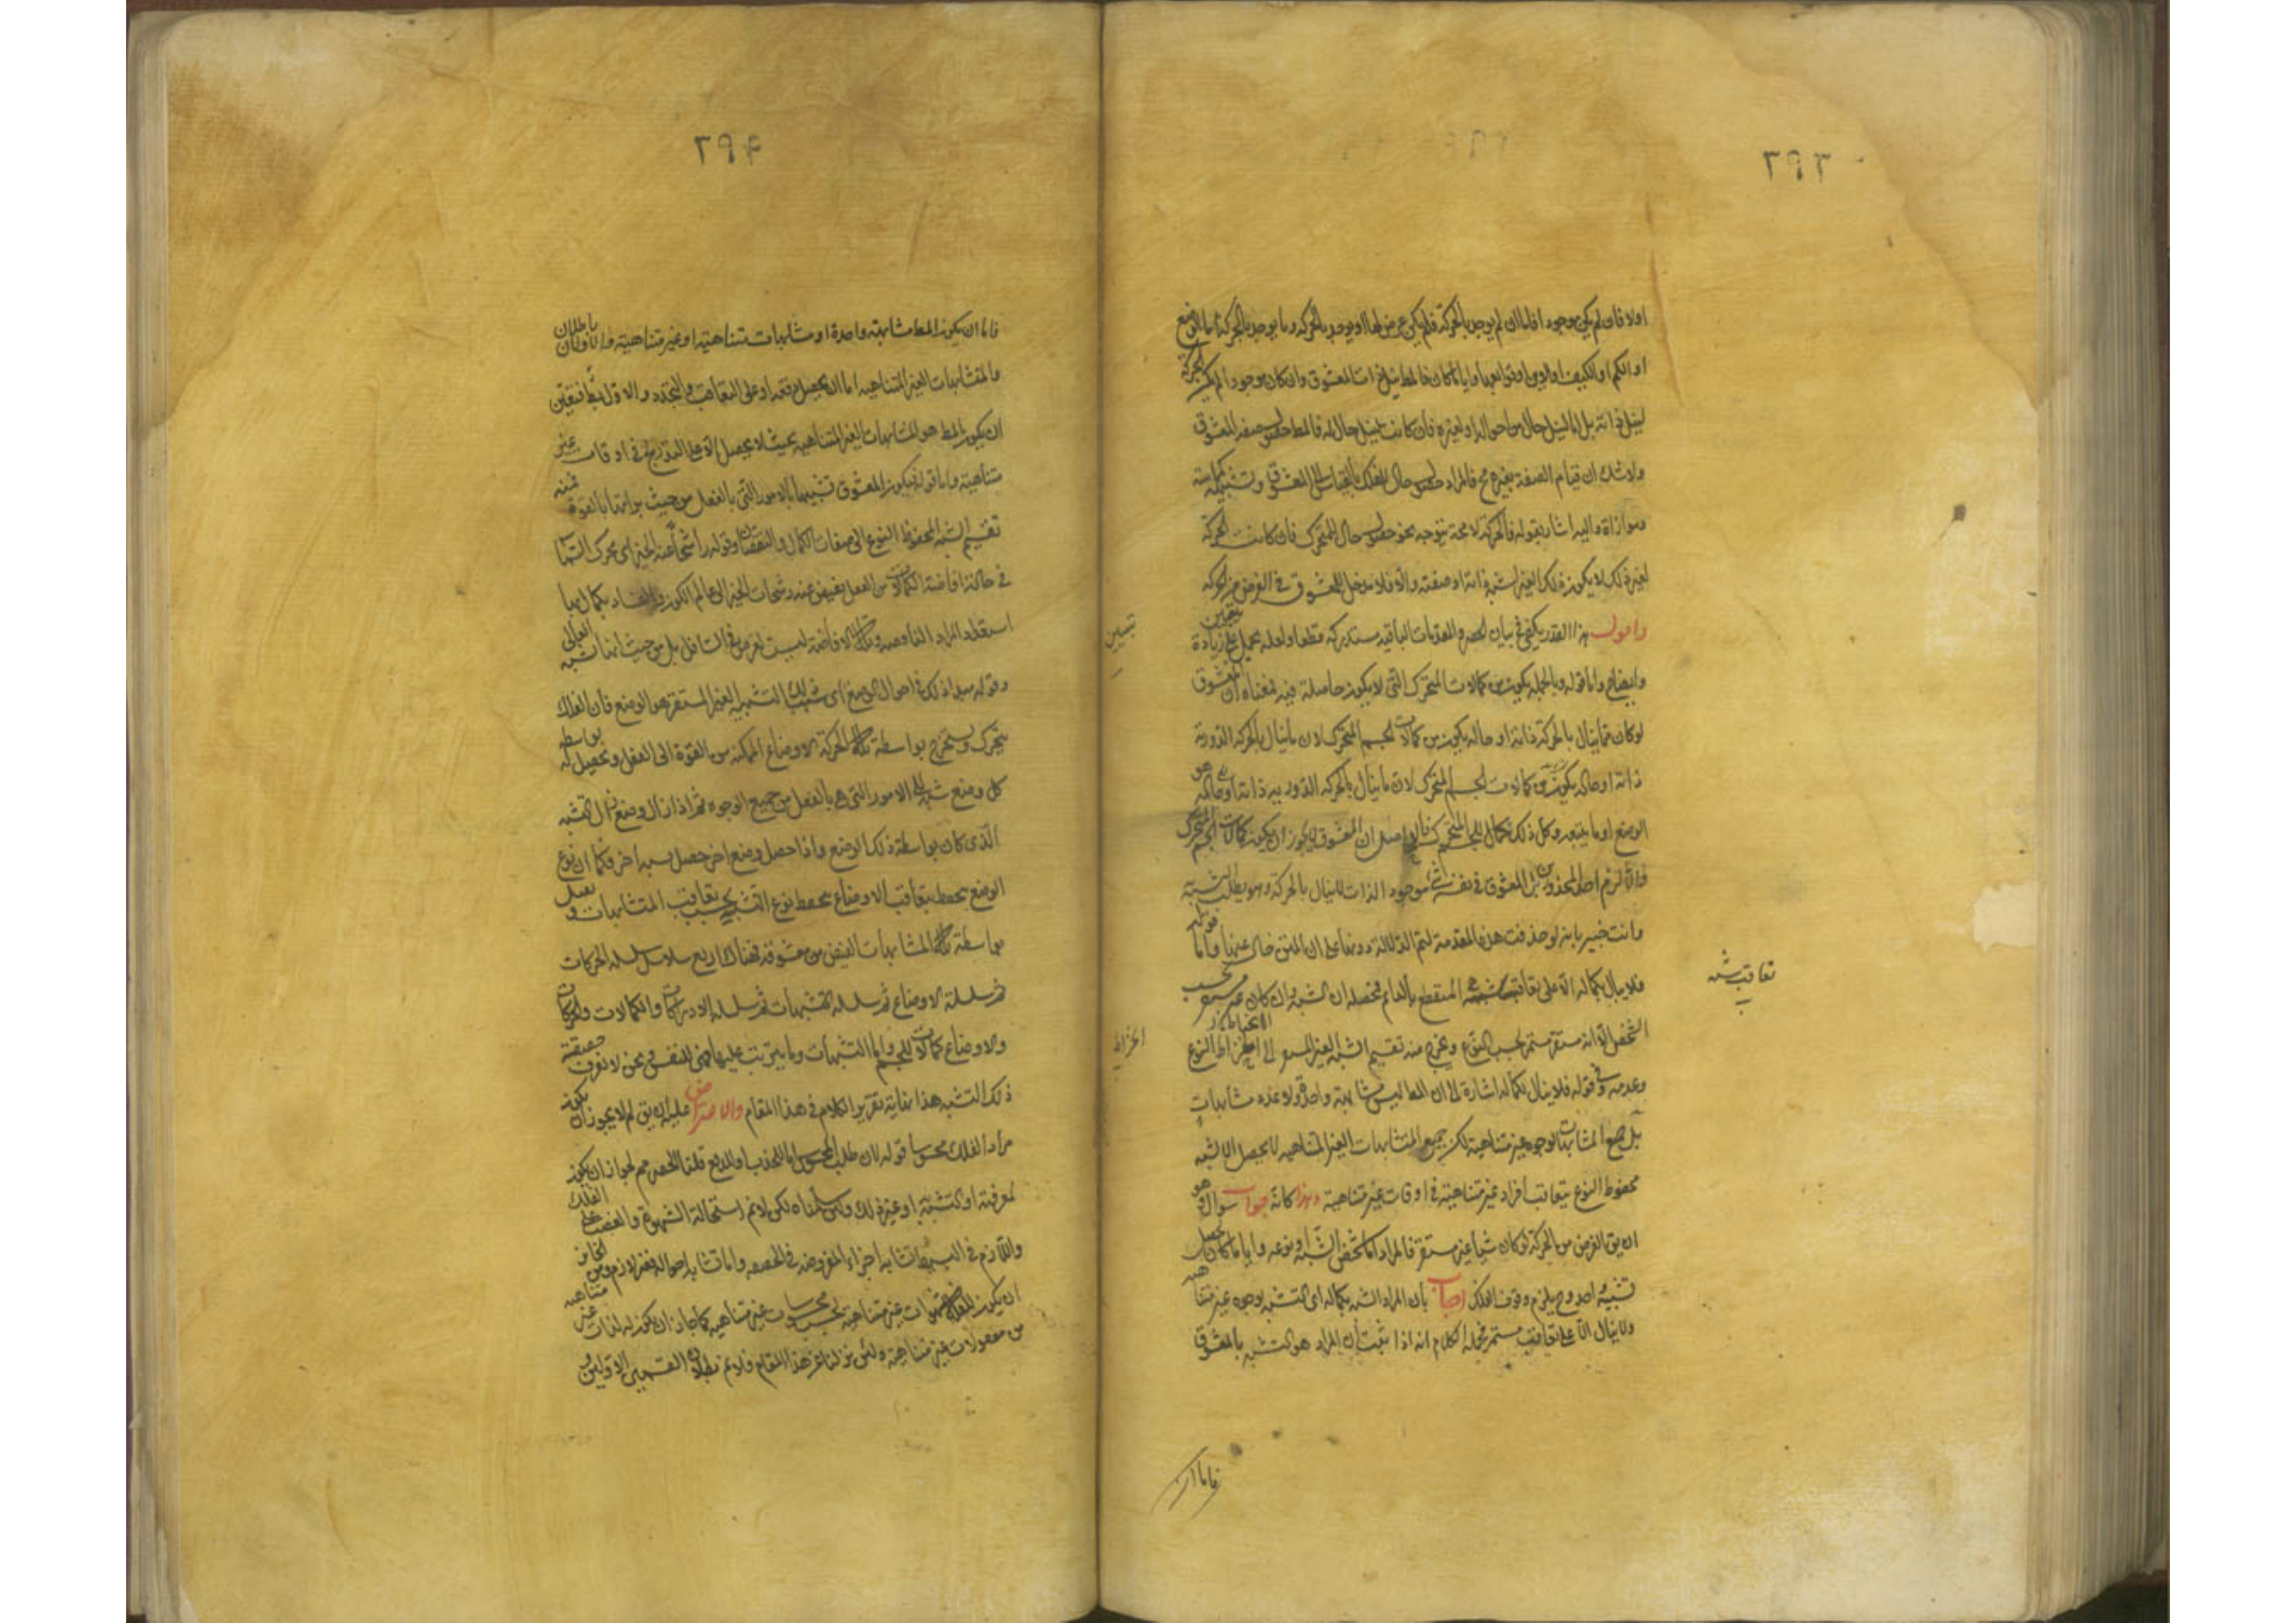 ٣٩٣
اولا فان لم يكن موجودا فاما ان لم يوجد بالحركة فلم يكن غرض لها او يوجد بالحركة وما يوجد بالحركة اما الوضع
او الكم او الكيف او الاين او توابعها وايا ما كان فالمط نيل ذات المعشوق وان كان موجودا لم يكن الحركة
لنيل ذاته بل اما لنيل حال من احواله او لغيره فان كانت لنيل حال له فالمط حصول صفة المعشوق
ولا شك ان قيام الصفة بغيره مح فالمراد حصول حال للفلك بالقياس الى المعشوق
وموازاة واليه اشار بقوله فالحركة لا محة يتوجه نحو حصول حال للمتحرك فان كانت الحركة
لغير ذلك لا يكون ذلك الغير لشبه ذاته او صفته والا فلا مدخل للمعشوق في الغرض من الحركة
واقول هذا القدر يكفي في بيان الحصر والمقدمات الباقية مستدركة قطعا ولعله يحمل على زيادة تبيين
وايضاح واما قوله وبالجملة يكون من كمالات المتحرك التي لا يكون حاصلة فيه فمعناه ان المعشوق
لو كان مما ينال بالحركة ذاته او حاله يكون من كمالات الجسم المتحرك لان ما ينال بالحركة الدورية
ذاته او حاله يكون من كمالات الجسم المتحرك لان ما ينال بالحركة الدورية ذاته او حاله هو
الوضع او ما يتبعه وكل ذلك كمال للجسم المتحرك ان المعشوق لا يجوز ان يكون كمالات الجسم المتحرك
والا لزم احد المحذورين المعشوق في نفسه شئ موجود الذات لا ينال بالحركة وهو يطلب التشبه
وانت خبير بانه لو حذفت هذه المقدمة لتم الدلالة دونها على ان المتن خال عنها واما قوله
فلا ينال بكماله الا على تعاقب يشبه المنقطع بالدائم فمحصله ان الشبه وان كان غير مستقر بحسب
الشخص الا انه مستقر مستمر بحسب النوع ويخرج منه تقسيم الشبه الغير المستقر الى النوع
وعدمه وفي قوله فلا ينال بكماله اشارة الى ان المط ليس مشابهة واحدة ولا عدة مشابهات
بل جميع المشابهات لوجوه غير متناهية لكن جميع المتشابهات الغير المتناهية لا يحصل الا لشبه
محفوظ النوع بتعاقب افراد غير متناهية في اوقات غير متناهية وهذا كانه جواب سؤال وهو
ان يق الغرض من الحركة لو كان شيئا غير مستقر فالمراد اما شخص الشبه او نوعه وايا ما كان حصل
تشبيه احد وح يلزم وقوف الفلك اجاب بان المراد الشبه بكماله اى التشبه بوجوه غير متناهية
ولا ينال الا على تعاقب مستمر فجملة الكلام انه اذا ثبت ان المراد هو التشبه بالمعشوق
تعاقب يشبه
تبيين
فاما ان
٣٩٤
فاما ان يكون المط مشابهة واحدة او مشابهات متناهية او غير متناهية والاولان باطلان
والمتشابهات الغير المتناهية اما ان يحصل دفعة او على التعاقب والتجدد والاول بط فتعين
ان يكون المط هو المشابهات الغير المتناهية بحيث لا يحصل الا على التدريج في اوقات غير
متناهية واما قوله فيكون المعشوق تشبيها بالامور التي بالفعل من حيث براءتها بالقوة فمنه
تقسيم الشبه المحفوظ النوع الى صفات الكمال والنقصان وقوله راشحا عنه الخير اى محرك السماء
في حالة افاضة الكمالات من الفعل يفيض عنه رشحات الخير الى عالم الكون والفساد بكمال
استعداد المواد الناقصة وتلك الافاضة ليست لغرض في السافل بل من حيث انها تشبه بالعالى
وقوله مبدا ذلك في احوال الوضع اى سبب ذلك التشبه الغير المستقر هو الوضع فان الفلك
يتحرك ويستخرج بواسطة تلك الحركة الاوضاع الممكنة من القوة الى الفعل ويحصل له بواسطة
كل وضع شبه الى الامور التي هى بالفعل من جميع الوجوه ثم اذا زال وضع زال التشبه
الذى كان بواسطة ذلك الوضع واذا حصل وضع اخر حصل شبه اخر فكما ان نوع
الوضع يحفظ بتعاقب الاوضاع يحفظ نوع التشبه بحسب تعاقب المتشابهات و
بواسطة تلك المشابهات الفيض من معشوقه فهناك اربع سلاسل سلسلة الحركات
ثم سلسلة الاوضاع ثم سلسلة التشبهات ثم سلسلة الادراكات والكمالات والحركات
والاوضاع كمالات للجسم واما التشبهات وما يترتب عليها فهى للنفس ونحن لا نعرف حقيقة
ذلك التشبه هذا غاية تقرير الكلام في هذا المقام والاعتراض عليه ان يق لم لا يجوز ان يكون
مراد الفلك محسوسا قوله لان طلب المحسوس اما للجذب او للدفع قلنا الحصر مم لجواز ان يكون
لمعرفته او التشبه به او غير ذلك ولئن سلمناه لكن لا نم استحالة الشهوة والغضب على الفلك
واللازم في البسيط تشابه اجزاء المفروضة في الحقيقة واما تشابه احواله فغير لازم ومن الجائز
ان يكون للفلك شهوات غير متناهية بحسب محسوسات غير متناهية كما جاز ان يكون له لذات غير متناهية
من معقولات غير متناهية ولئن نزلنا عن هذا المقام فلا نم بطلان القسمين الاولين